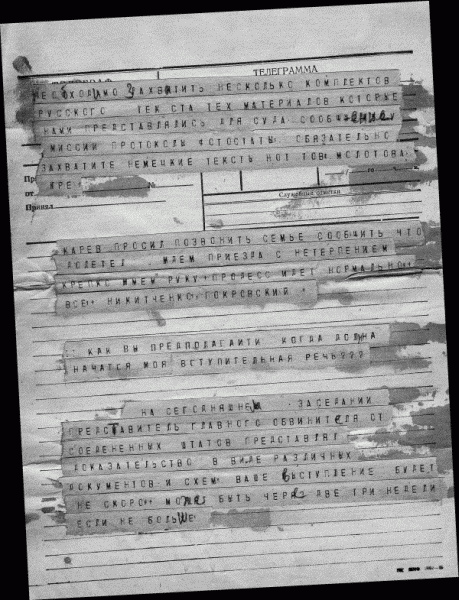 ТЕЛЕГРАММА
НЕОБХОДИМО ЗАХВАТИТЬ НЕСКОЛЬКО КОМПЛЕКТОВ
РУССКОГО ТЕКСТА ТЕХ МАТЕРИАЛОВ КОТОРЫЕ
НАМИ ПРЕДСТАВЛЯЛИСЬ ДЛЯ СУДА СООБЩЕНИЕ
МИССИИ ПРОТОКОЛЫ ФОТОСТАТЫ ОБЯЗАТЕЛЬНО
ЗАХВАТИТЕ НЕМЕЦКИЕ ТЕКСТЫ НОТ ТОВ МОЛОТОВА
Служебные отметки
от №
Принял
КАРЕВ ПРОСИЛ ПОЗВОНИТЬ СЕМЬЕ СООБЩИТЬ ЧТО
ДОЛЕТЕЛ ЖДЕМ ПРИЕЗДА С НЕТЕРПЕНИЕМ
КРЕПКО ЖМЕМ РУКУ ПРОЦЕСС ИДЕТ НОРМАЛЬНО
ВСЕ НИКИТЧЕНКО ПОКРОВСКИЙ
КАК ВЫ ПРЕДПОЛАГАЙТИ КОГДА ДОЛЖНА
НАЧАТСЯ МОЯ ВСТУПИТЕЛЬНАЯ РЕЧЬ???
НА СЕГОДНЯШНЕМ ЗАСЕДАНИИ
ПРЕДСТАВИТЕЛЬ ГЛАВНОГО ОБВИНИТЕЛЯ ОТ
СОЕДЕНЕННЫХ ШТАТОВ ПРЕДСТАВЛЯЛ
ДОКАЗАТЕЛЬСТВО В ВИДЕ РАЗЛИЧНЫХ
ДОКУМЕНТОВ И СХЕМ ВАШЕ ВЫСТУПЛЕНИЕ БУДЕТ
НЕ СКОРО МОЖЕ БЫТЬ ЧЕРЕЗ ДВЕ ТРИ НЕДЕЛИ
ЕСЛИ НЕ БОЛЬШЕ